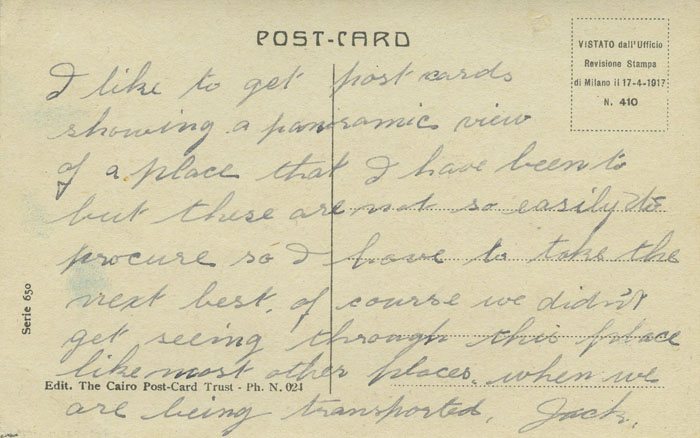 POST-CARD
VISTATO dall'Ufficio
Revisione Stampa
di Milano il 17-4-1917
N. 410
I like to get post cards
showing a panoramic view
of a place that I have been to
but these are not so easily to
procure so I have to take the
next best. of course we didn't
get seeing through this place
like most other places. when we
are being transported. Jack.
Serie 650
Edit. The Cairo Post-Card Trust - Ph. N. 024